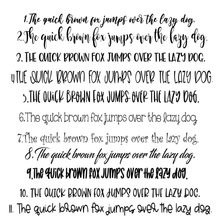 1.The quick brown fox jumps over the lazy dog.
2.The quick brown fox jumps over the lazy dog.
3. THE QUICK BROWN FOX JUMPS OVER THE LAZY DOG.
4.THE QUICK BROWN FOX JUMPS OVER THE LAZY DOG.
5.THE QUICK BROWN FOX JUMPS OVER THE LAZY DOG.
6.The quick brown fox jumps over the lazy dog.
7.The quick brown fox jumps over the lazy dog.
8.The quick brown fox jumps over the lazy dog.
9.The quick brown fox jumps over the lazy dog.
10. THE QUICK BROWN FOX JUMPS OVER THE LAZY DOG.
11. The quick brown fox jumps over the lazy dog.